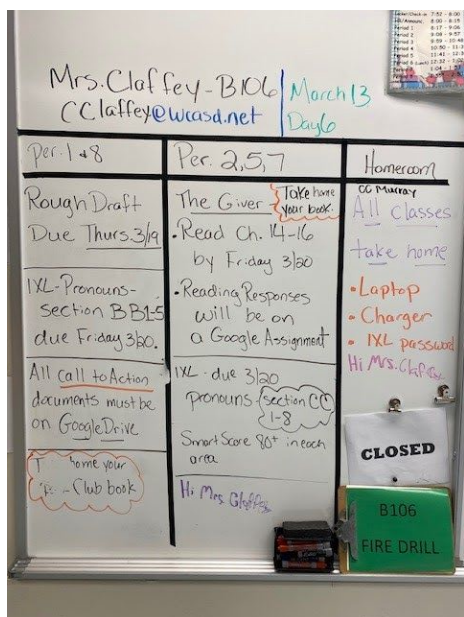 Mrs. Claffey - B106
CClaffey@wcasd.net
March 13
Day 6
Per. 1 & 8
Rough Draft
Due Thurs. 3/19
IXL-Pronouns-
section BB1-5
due Friday 3/20.
All call to Action
documents must be
on Google Drive
home your
Club book
Per. 2,5,7
The Giver
Take home
your book.
• Read Ch. 14-16
by Friday 3/20
• Reading Responses
will be on
a Google Assignment
IXL - due 3/20
pronouns - section CC
1-8
SmartScore 80+ in each
area
Hi Mrs. Claffey
Homeroom
CC Murray
All classes
take home
• Laptop
• Charger
• IXL password
Hi Mrs. Claffey
CLOSED
B106
FIRE DRILL
7:52 - 8:00
8:00 - 8:15
8:17 - 9:06
9:08 - 9:57